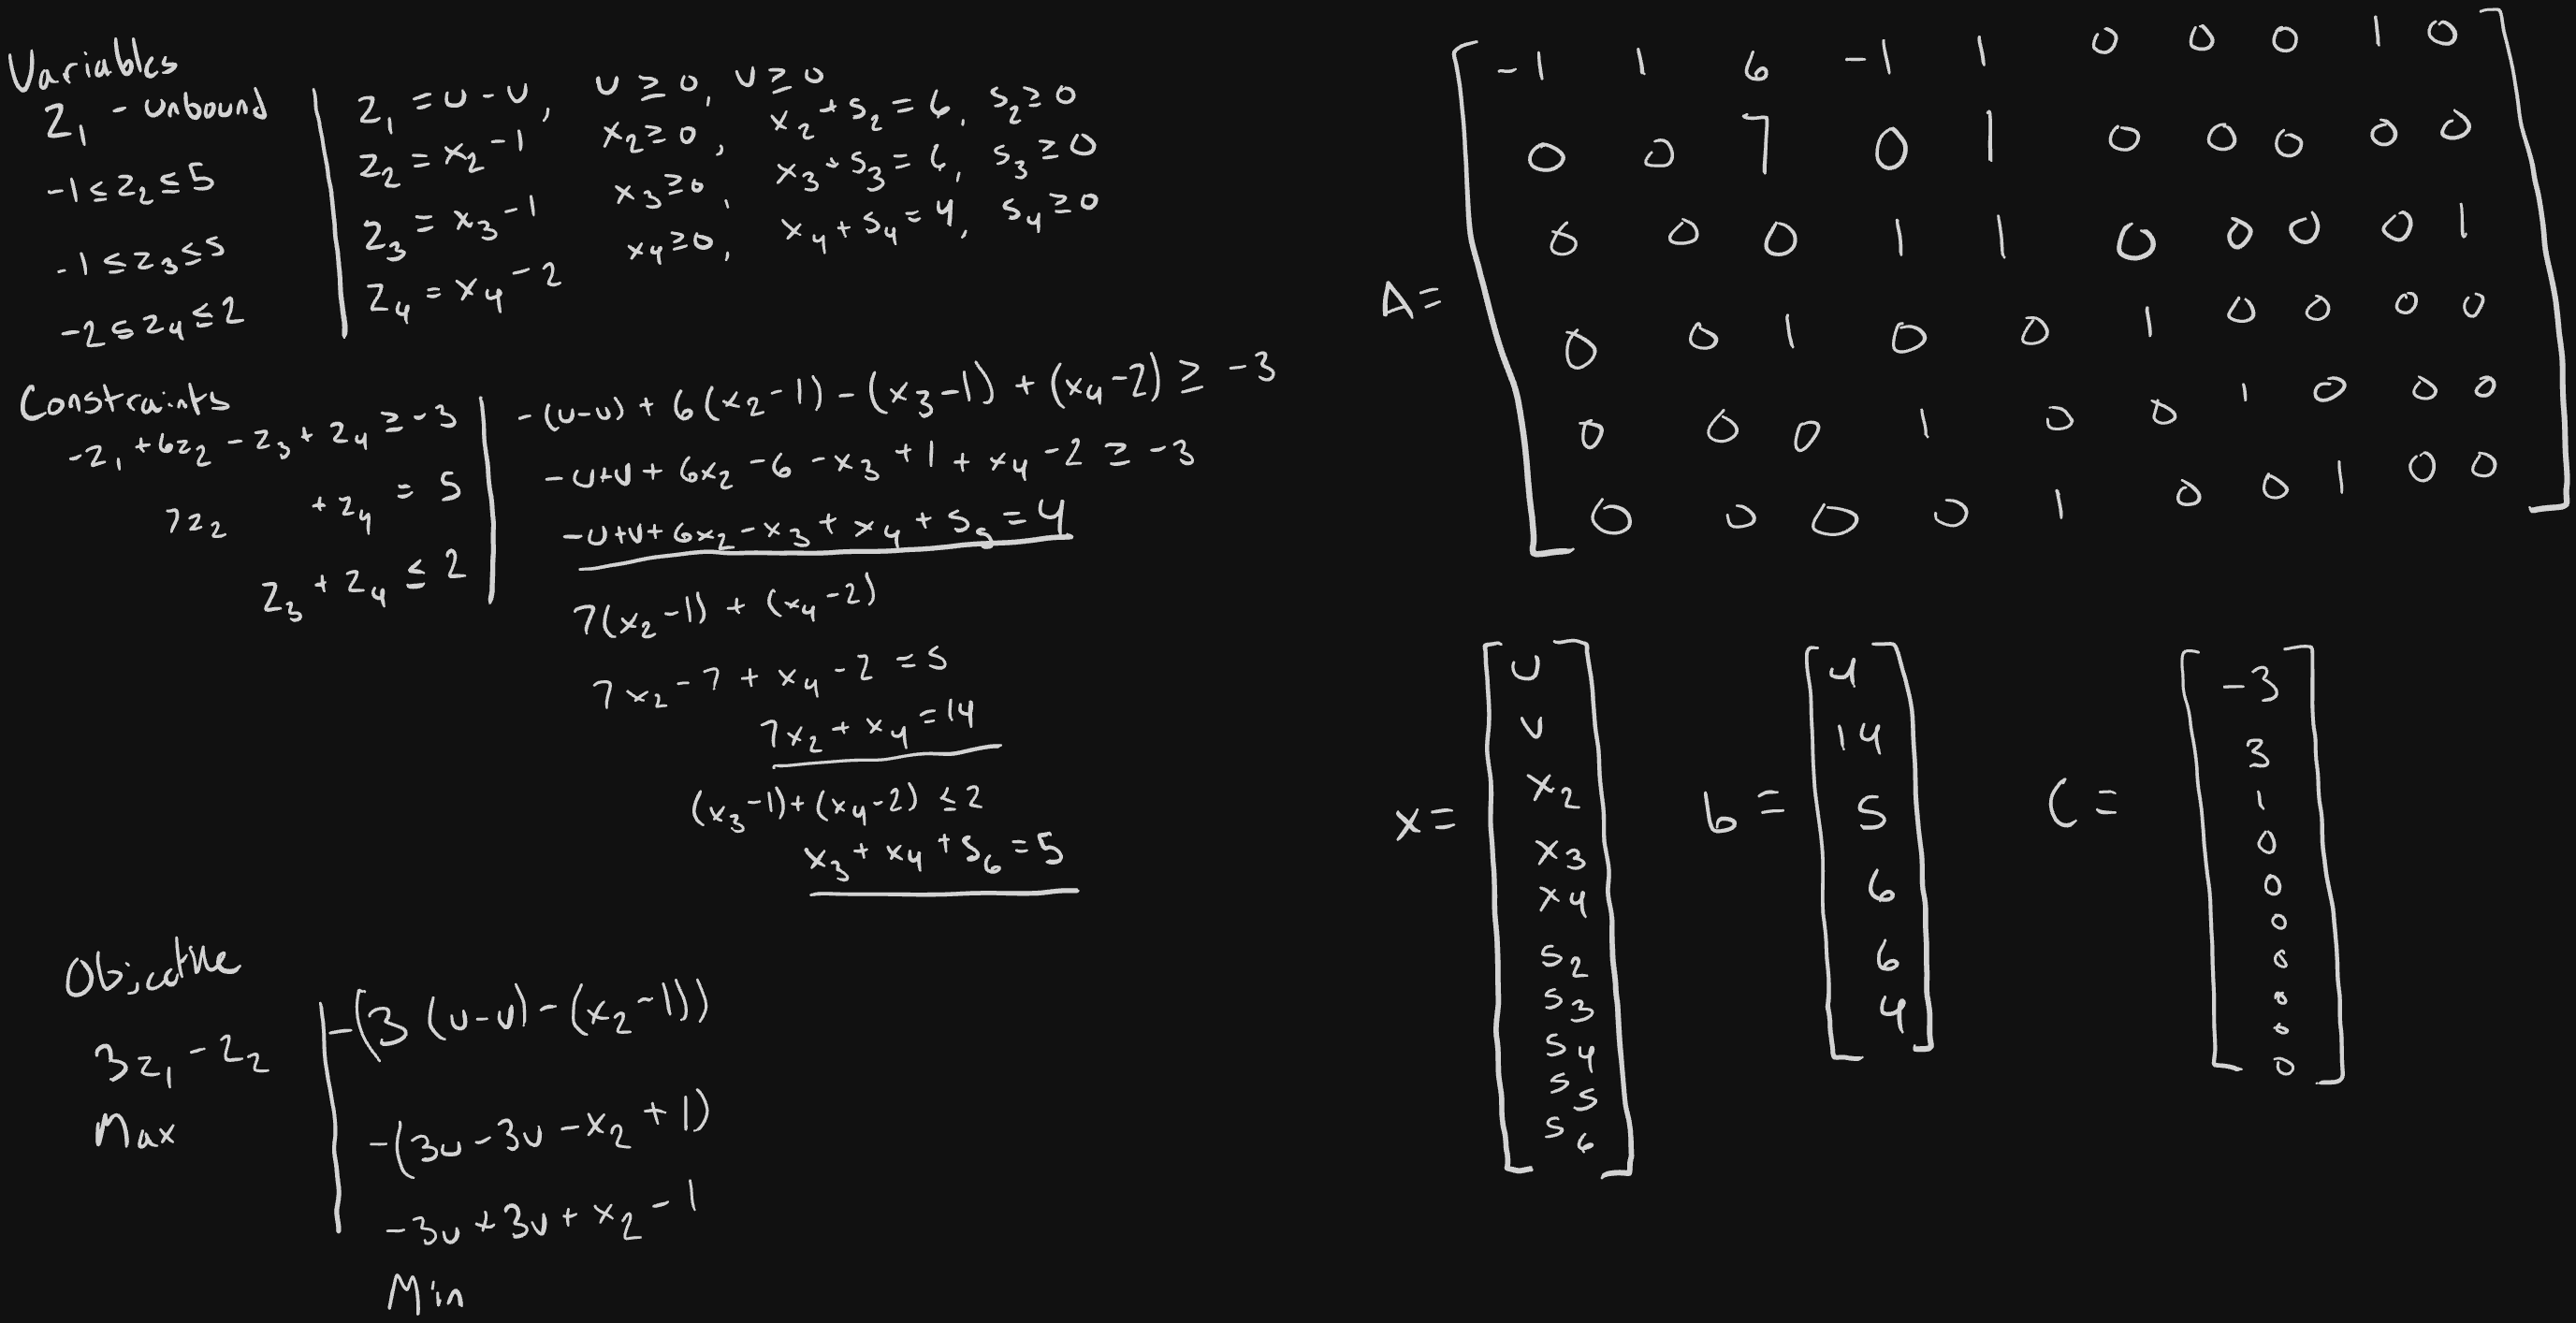 Variables
z₁ - unbound | z₁ = u - v, u ≥ 0, v ≥ 0
-1 ≤ z₂ ≤ 5 | z₂ = x₂ - 1 x₂ ≥ 0, x₂ + s₂ = 6, s₂ ≥ 0
-1 ≤ z₃ ≤ 5 | z₃ = x₃ - 1 x₃ ≥ 0, x₃ + s₃ = 6, s₃ ≥ 0
-2 ≤ z₄ ≤ 2 | z₄ = x₄ - 2 x₄ ≥ 0, x₄ + s₄ = 4, s₄ ≥ 0
Constraints
-z₁ + 6z₂ - z₃ + z₄ ≥ -3
7z₂ + z₄ = 5
z₃ + z₄ ≤ 2
-(u-v) + 6(x₂-1) - (x₃-1) + (x₄-2) ≥ -3
-u+v + 6x₂ - 6 - x₃ + 1 + x₄ - 2 ≥ -3
-u+v+6x₂-x₃+x₄+s₅ = 4
7(x₂-1) + (x₄-2)
7x₂ - 7 + x₄ - 2 = 5
7x₂ + x₄ = 14
(x₃-1)+(x₄-2) ≤ 2
x₃ + x₄ + s₆ = 5
Objective
3z₁ - z₂
Max
-(3(u-v) - (x₂-1))
-(3u - 3v - x₂ + 1)
-3u + 3v + x₂ - 1
Min
A =
-1 1 6 -1 1 0 0 0 1 0
0 0 7 0 1 0 0 0 0 0
0 0 0 1 1 0 0 0 0 1
0 0 1 0 0 1 0 0 0 0
0 0 0 1 0 0 1 0 0 0
0 0 0 0 1 0 0 1 0 0
x =
u
v
x₂
x₃
x₄
s₂
s₃
s₄
s₅
s₆
b =
4
14
5
6
6
4
C =
-3
3
1
0
0
0
0
0
0
0